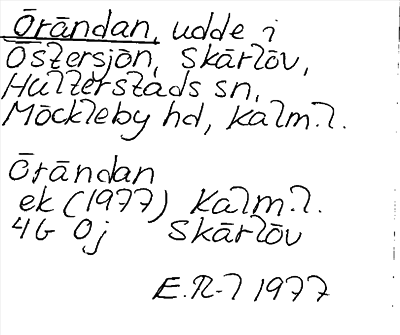 Örändan, udde i
Östersjön, Skärlöv,
Hulterstads sn,
Möckleby hd, Kalm.l.
Örändan
ek (1977) Kalm.l.
4G 0j Skärlöv
E.R-l 1977